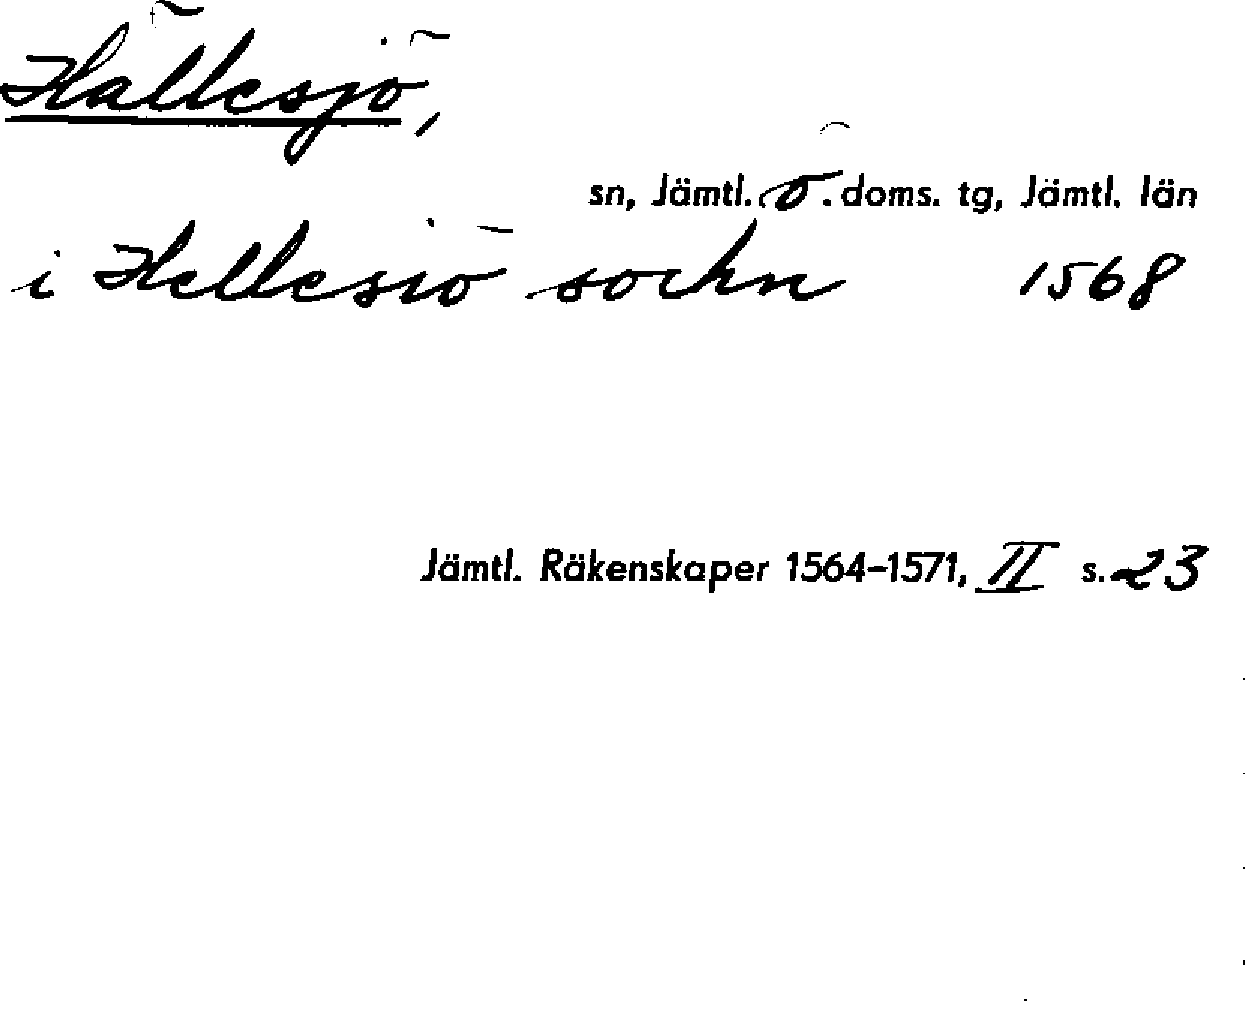 Hällesjö,
sn, Jämtl. ö. doms. tg, Jämtl. län
i Hellesiö sochn 1568
Jämtl. Räkenskaper 1564-1571, II s. 23